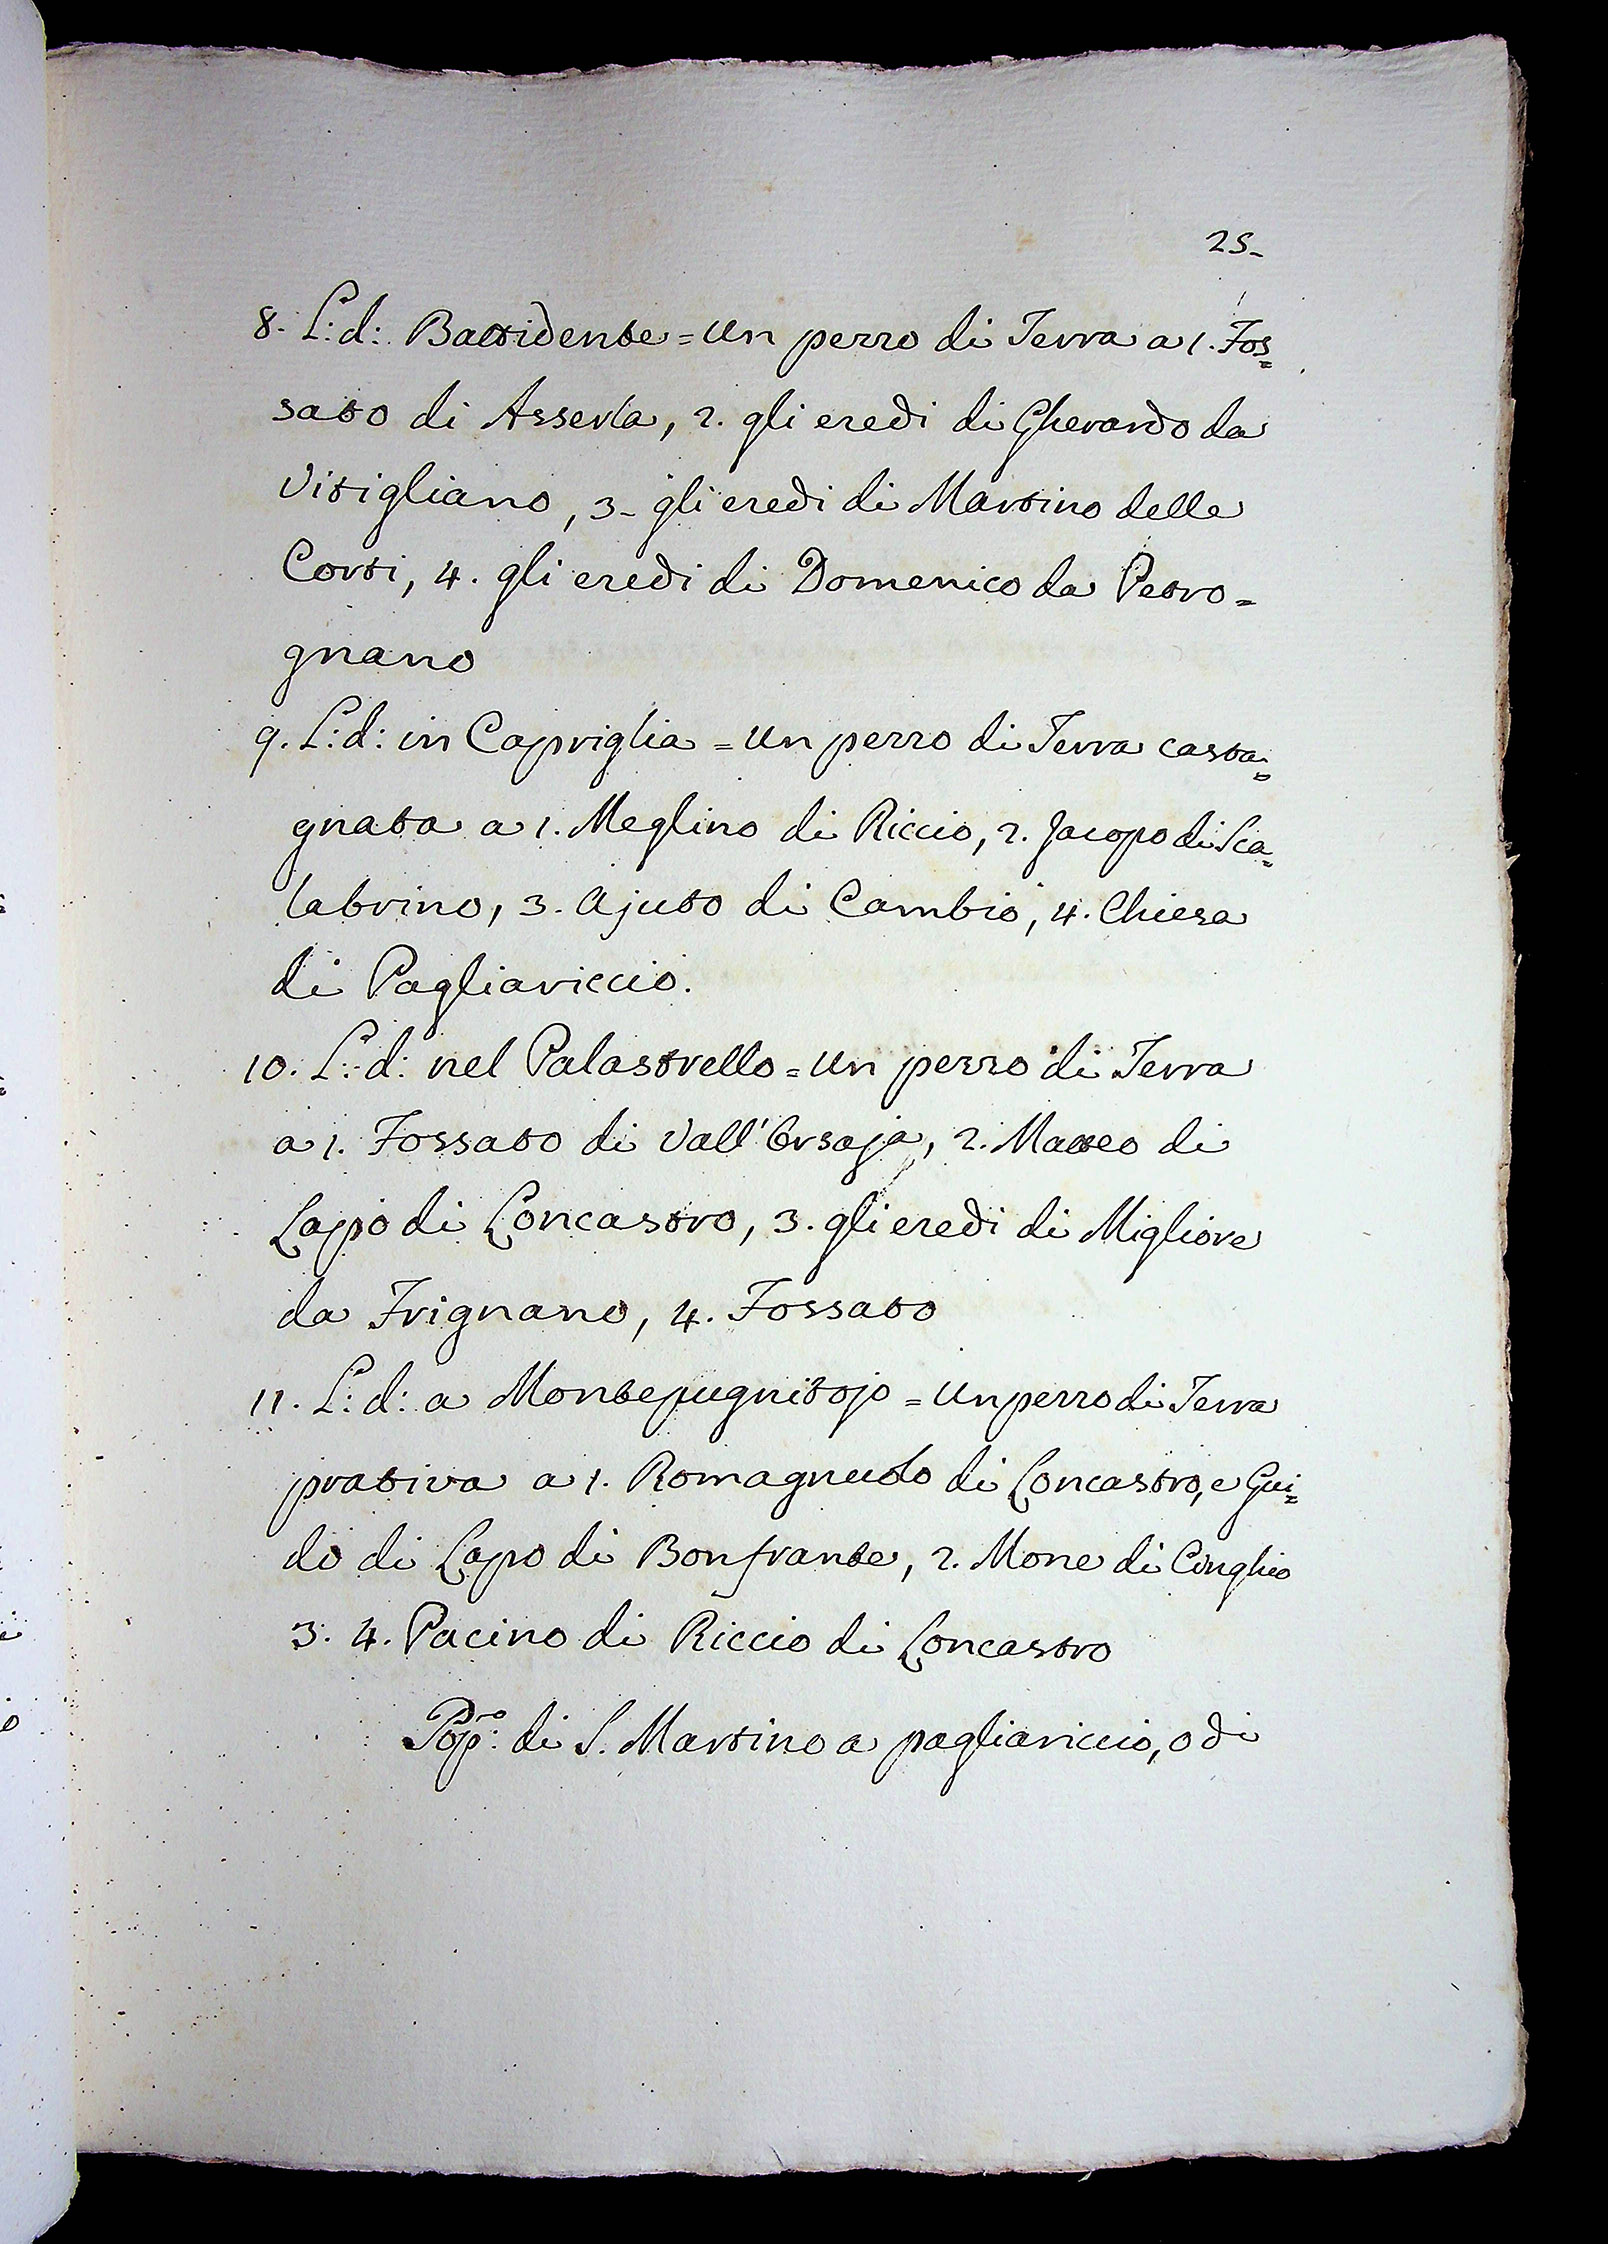 25-
8. L: d: Battidente = Un pezzo di Terra a 1. Fos=
sato di Asserla, 2. gli eredi di Gherardo da
Vitigliano, 3- gli eredi di Martino delle
Corti, 4. gli eredi di Domenico da Petro=
gnano
9. L: d: in Capriglia = Un pezzo di Terra casta=
gnata a 1. Meglino di Riccio, 2. Jacopo di Sca=
labrino, 3. Ajuto di Cambio, 4. Chiesa
di Pagliariccio.
10. L: d: nel Palastrello = Un pezzo di Terra
a 1. Fossato di Vall'Orsaja, 2. Matteo di
Lapo di Loncastro, 3. gli eredi di Migliore
da Frignano, 4. Fossato
11. L: d: a Montepugnitojo = Un pezzo di Terra
prativa a 1. Romagnuolo di Loncastro, e Gui=
do di Lapo di Bonfrante, 2. Mone di Cinghio
3. 4. Pacino di Riccio di Loncastro
Pop:o di S. Martino a pagliariccio, o di